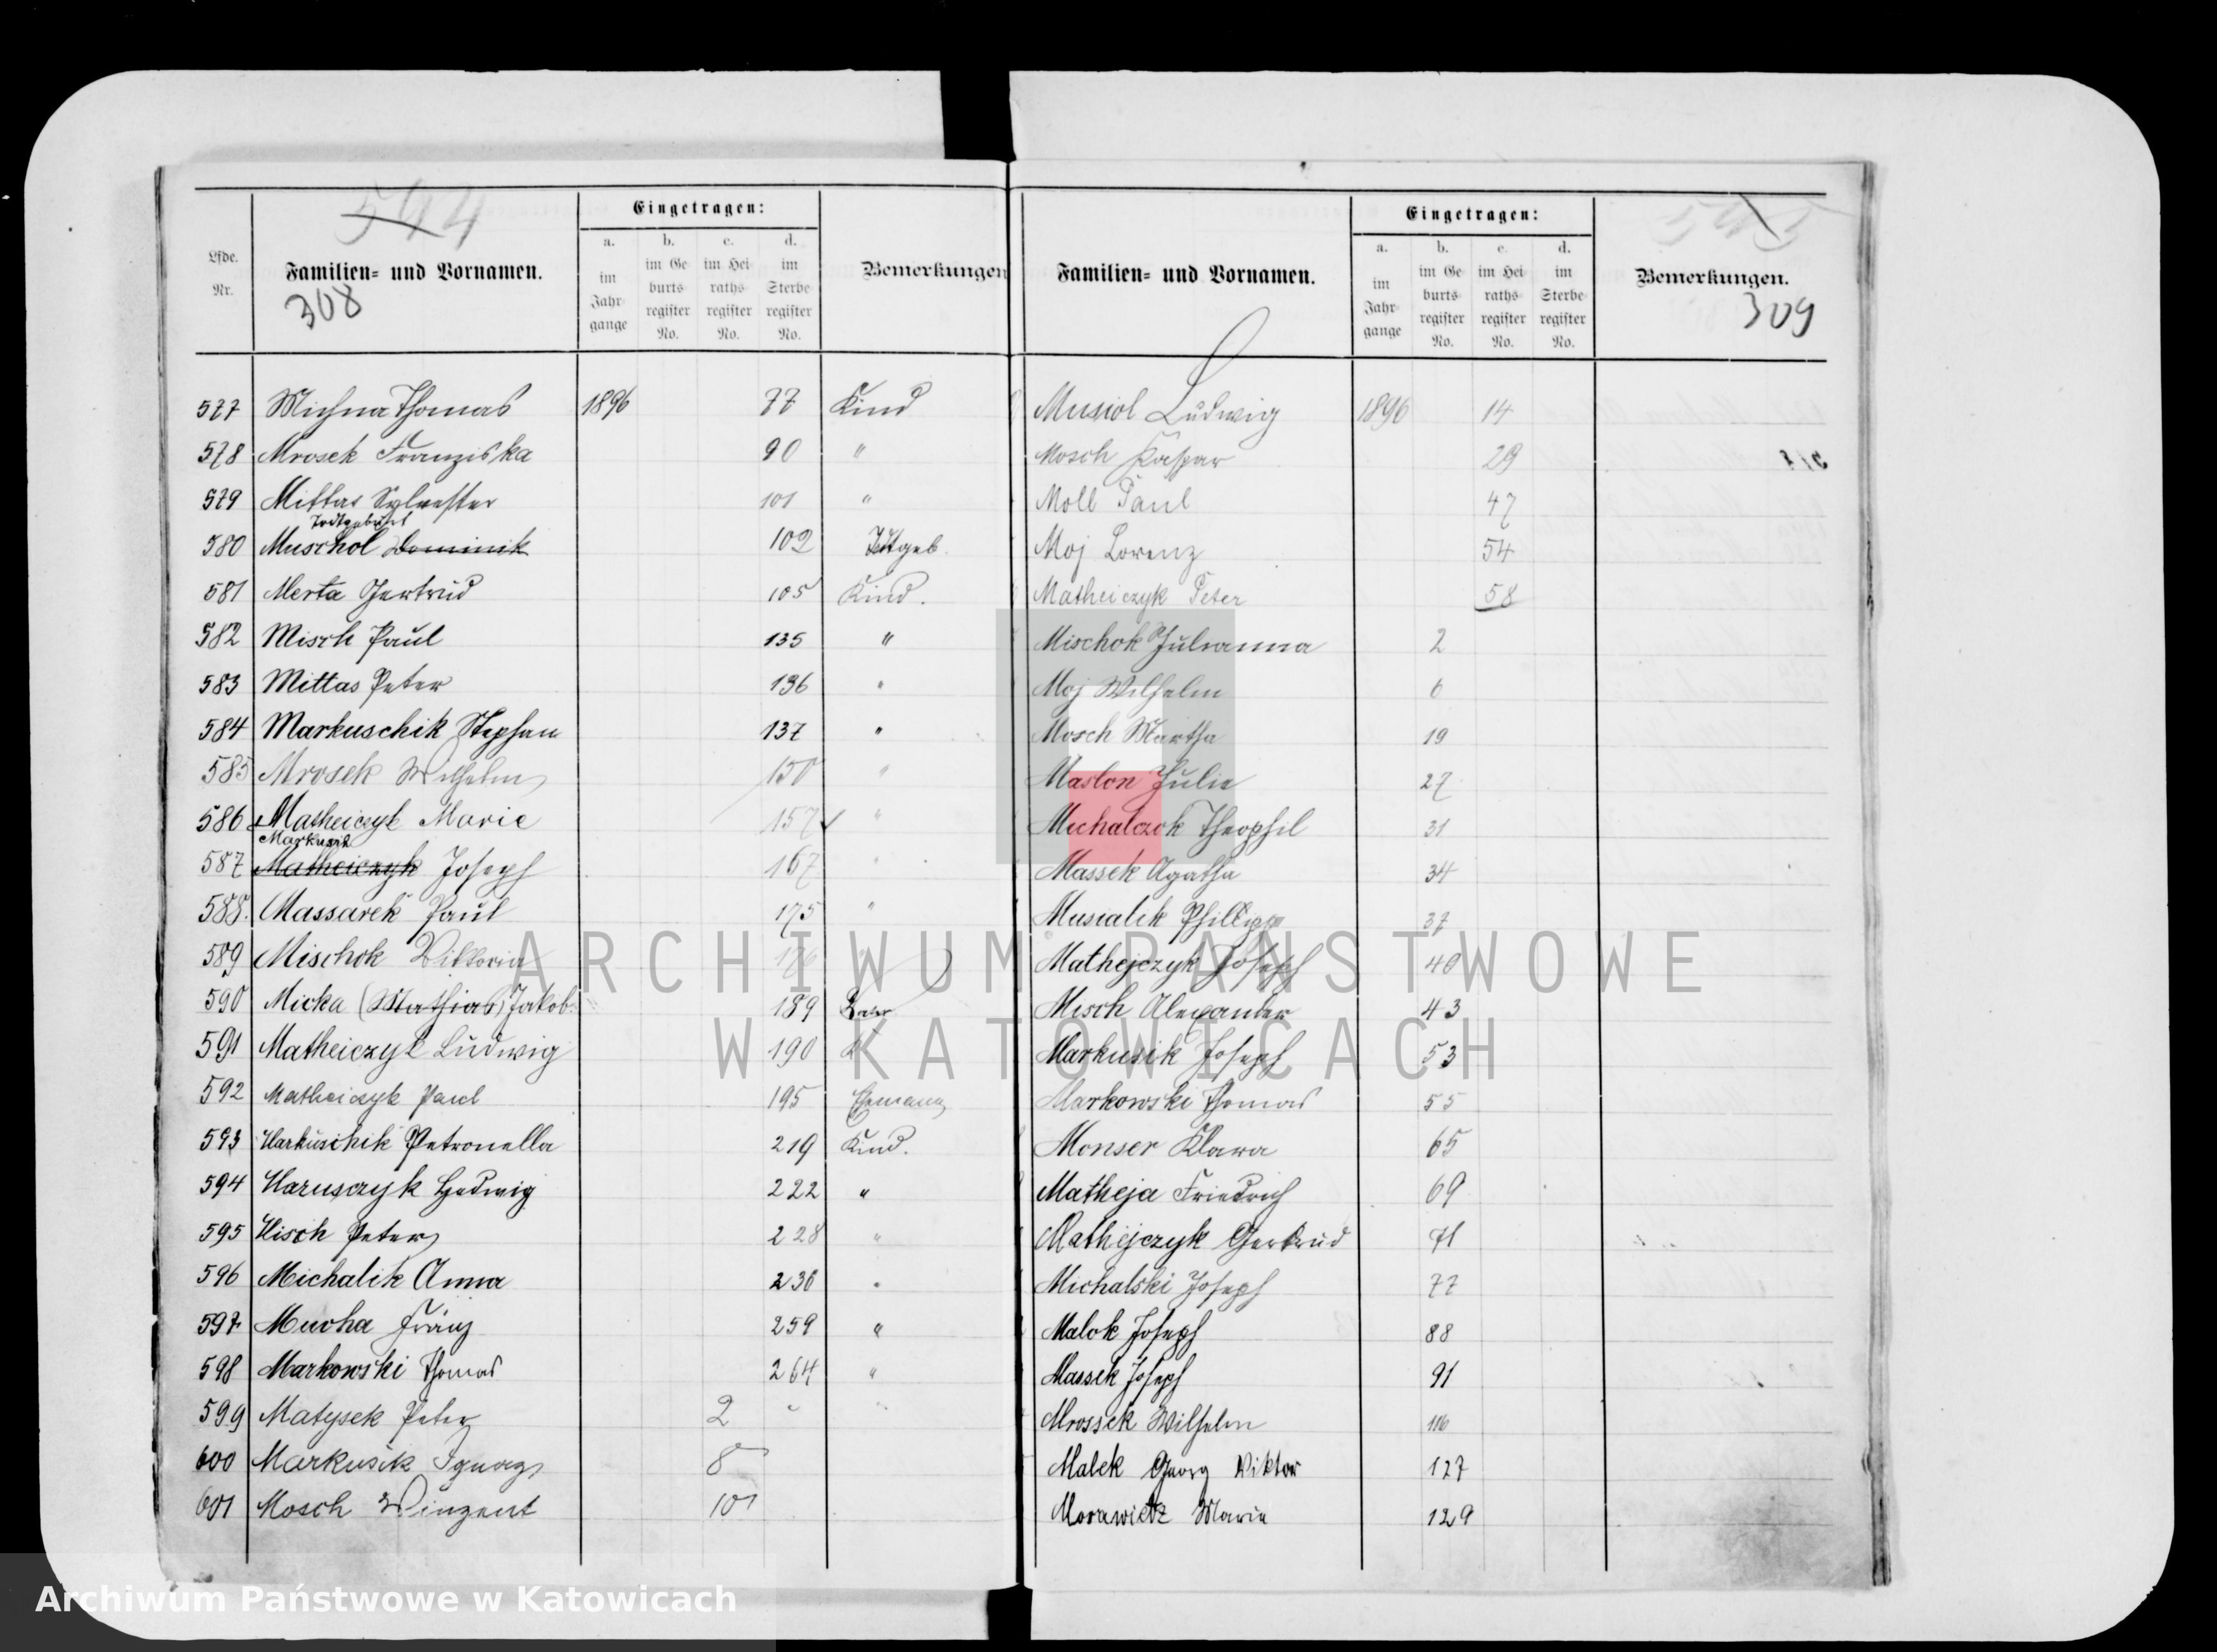 594
Lfde. Nr.
Familien= und Vornamen.
308
Eingetragen:
a. im Jahr- gange
b. im Ge- burts- register No.
c. im Hei- raths- register No.
d. im Sterbe- register No.
Bemerkungen
577 Michna Thomas 1896 77 Kind
578 Mrosek Franziska 90 "
579 Mittas Sylvester 101 "
Todtgeburt
580 Muschol Dominik 102 Todtgeb.
581 Merta Gertrud 105 Kind.
582 Misch Paul 135 "
583 Mittas Peter 136 "
584 Markuschik Stephan 137 "
585 Mrosek Wilhelm 150 "
586 Matheiczyk Marie 157 "
Markusik
587 Matheiczyk Joseph 167 "
588. Massarek Paul 175 "
589 Mischok Viktoria 176
590 Micka (Mathias) Jakob 189
591 Matheiczyk Ludwig 190
592 Matheiczyk Paul 195 Ehemann
593 Markuschik Petronella 219 Kind.
594 Marusczyk Hedwig 222 "
595 Misch Peter 228 "
596 Michalik Anna 236 "
597 Mucha Franz 259 "
598 Markowski Thomas 264 "
599 Matysek Peter 2
600 Markusik Ignatz 8
601 Mosch Vinzent 10
Familien= und Vornamen.
Eingetragen:
a. im Jahr- gange
b. im Ge- burts- register No.
c. im Hei- raths- register No.
d. im Sterbe- register No.
Bemerkungen.
309
Musiol Ludwig 1896 14
Mosch Kaspar 29
Moll Paul 47
Moj Lorenz 54
Matheiczyk Peter 58
Mischok Julianna 2
Moj Wilhelm 6
Mosch Martha 19
Maslon Julie 27
Michalczok Theophil 31
Massek Agatha 34
Musialik Phillipp 37
Mathejczyk Joseph 40
Misch Alexander 43
Markusik Joseph 53
Markowski Thomas 55
Monser Klara 65
Matheja Friedrich 69
Mathejczyk Gertrud 71
Michalski Joseph 77
Malok Joseph 88
Massek Joseph 91
Mrossek Wilhelm 116
Malek Georg Viktor 127
Morawietz Marie 129
ARCHIWUM PAŃSTWOWE
W KATOWICACH
Archiwum Państwowe w Katowicach